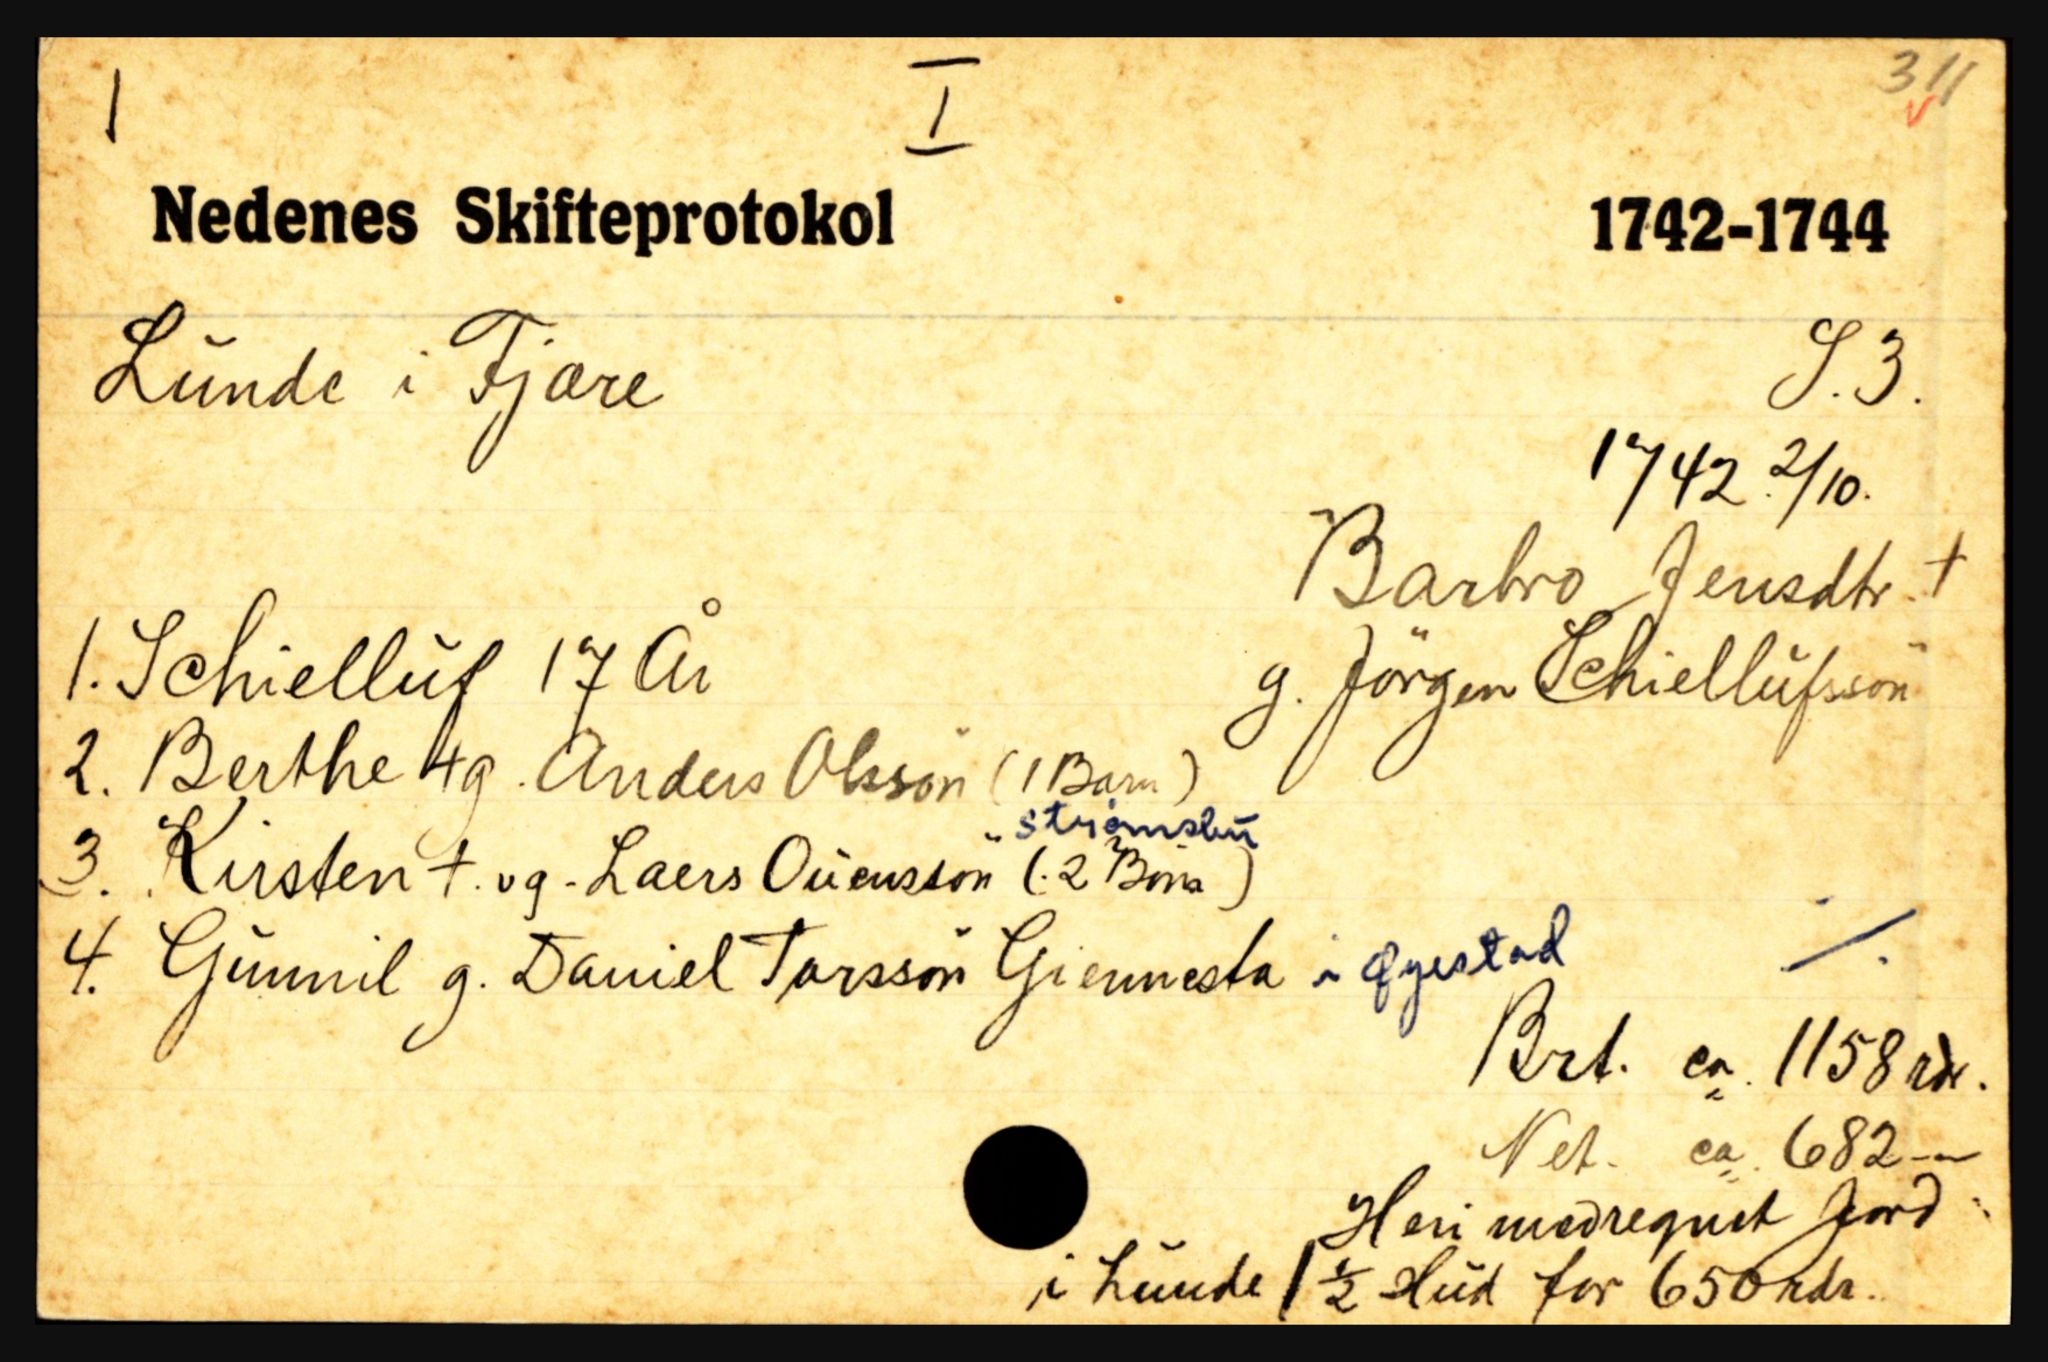 1 I 311
Nedenes Skifteprotokol 1742-1744
Lunde i Fjære S. 3.
1742 2/10.
Barbro Jensdtr. †
g. Jörgen Schiellufssön
1. Schielluf 17 År
2. Berthe †g. Anders Olssön (1 Barn)
Strømsbu
3. Kirsten †. vg. Laers Ouenssön (2 Börn)
4. Gunnil g. Daniel Tarssön Giennesta i Øyestad
Brt. ca. 1158 rdr.
Net. ca. 682 —
Heri medregnet Jord
i Lunde 1 1/2 Hud for 650 rdr.